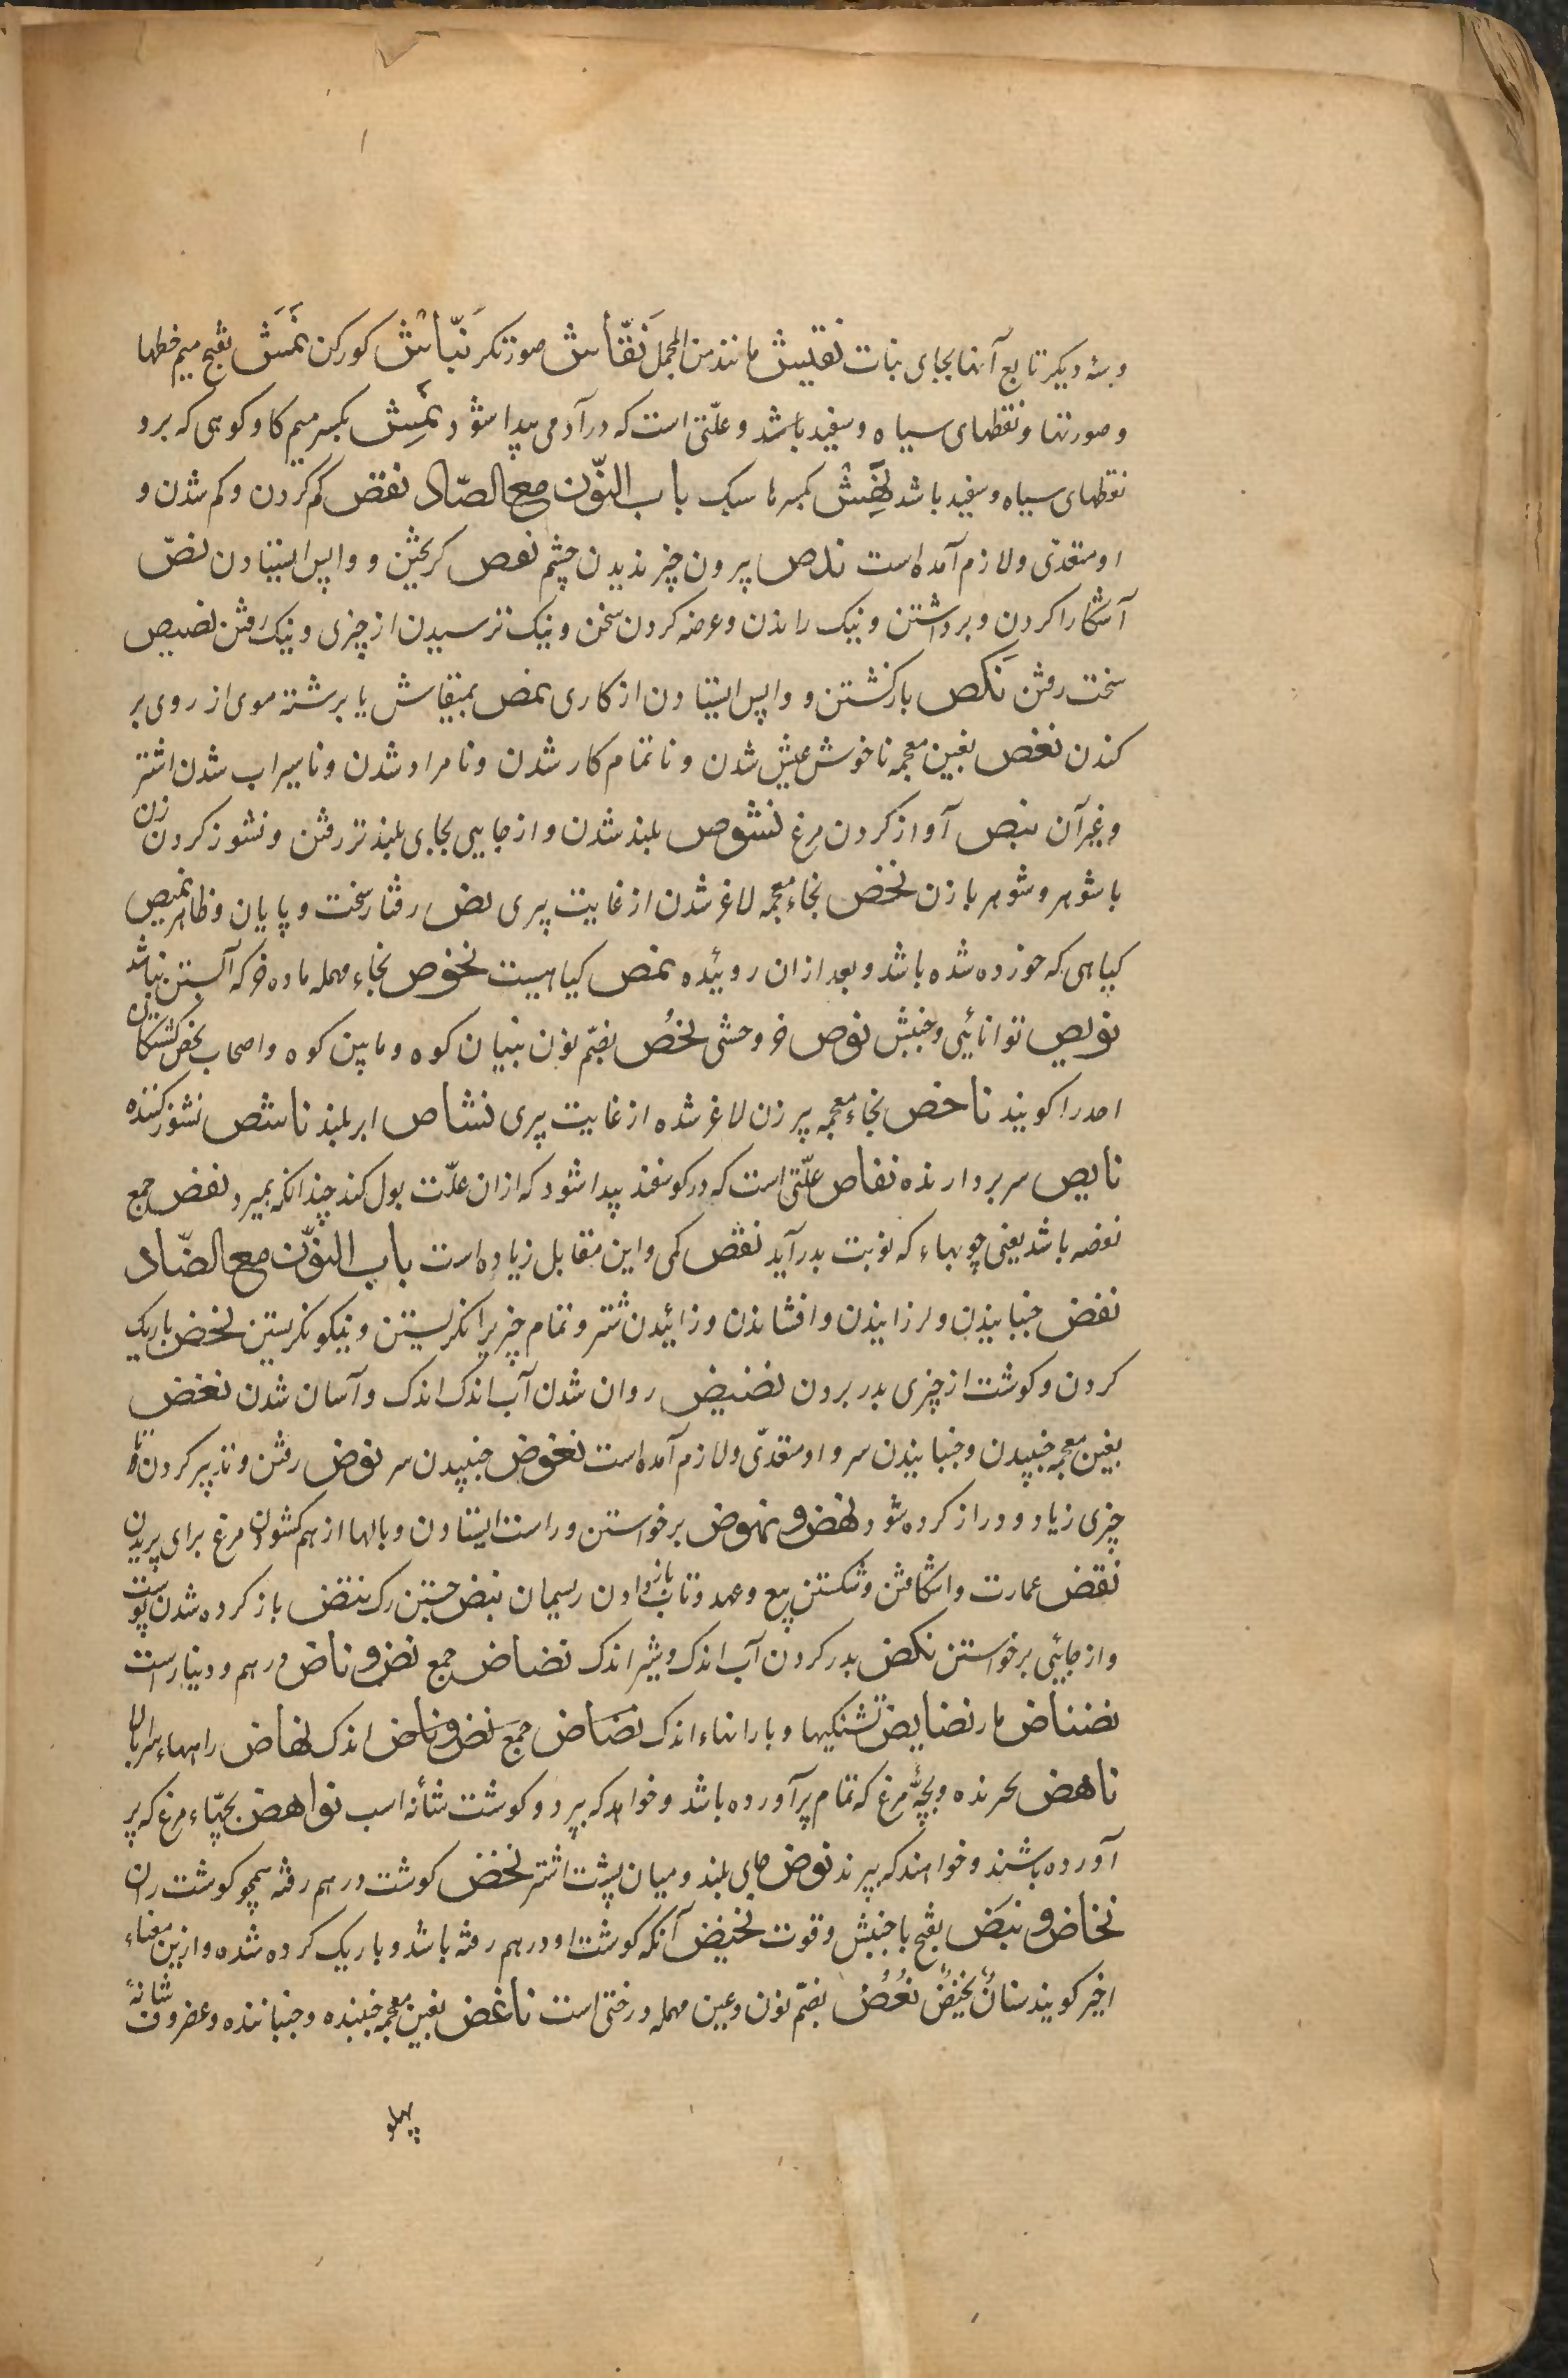 و سه دیکر تابع آنها بجای بنات نقیش مانند من المجمل نَقّاش صورتکر نَبّاش کورکن نَمَش بفتح میم خطها
و صورتها و نقطهای سیاه و سفید باشد و علّتی است که در آدمی پیدا شود نَمِش بکسر میم کاو کوهی که برو
نقطهای سیاه و سفید باشد نَهِش بکسر ها سبک باب النّون مع الصّاد نقص کم کردن و کم شدن و
او متعدّی و لازم آمده است ندص بیرون چیز ندیدن چشم نعص کریختن و واپس ایستادن نصّ
آشکارا کردن و برداشتن و نیک راندن و عرضه کردن سخن و نیک ترسیدن از چیزی و نیک رفتن نصیص
سخت رفتن نَکص بازکشتن و واپس ایستادن از کاری نمص بمنقاش یا برشته موی از روی بر
کندن نغص بغین معجمه ناخوش عیش شدن و ناتمام کار شدن و نامراد شدن و ناسیراب شدن اشتر
و غیر آن نبص آواز کردن مرغ نشوص بلند شدن و از جایی بجای بلندتر رفتن و نشوز کردن زن
با شوهر و شوهر با زن نخص بخاء معجمه لاغر شدن از غایت پیری نص رفتار سخت و پایان و ظاهر نمیص
کیاهی که خورده شده باشد و بعد از ان روئیده نمص کیاهیست نحوص بحاء مهمله ماده خر که آبستن نباشد
نویص توانائی و جنبش نوص خر وحشی نحُص بضم نون بنیان کوه و مابین کوه و اصحاب نحص کشتکان
احد را کویند ناخص بخاء معجمه پیر زن لاغر شده از غایت پیری نشاص ابر بلند ناشص نشوز کننده
نایص سر بردارنده نفاص علّتی است که در کوسفند پیدا شود که از ان علّت بول کند چندانکه بمیرد نفص جمع
نفصه باشد یعنی چوبهاء که نوبت بدر آید نقص کمی و این مقابل زیاده است باب النّون مع الضّاد
نفض جنبانیدن و لرزانیدن و افشاندن و زائیدن شتر و تمام چیزیرا نکریستن و نیکو نکریستن نحض باریک
کردن و کوشت از چیزی بدر بردن نضیض روان شدن آب اندک اندک و آسان شدن نغض
بغین معجمه جنبیدن و جنبانیدن سر و او متعدّی و لازم آمده است نغوض جنبیدن سر نوض رفتن و تدبیر کردن تا
چیزی زیاد و دراز کرده شود نهض و نهوض برخواستن و راست ایستادن و بالها از هم کشودن مرغ برای پریدن
نقض عمارت وا شکافتن و شکستن بیع و عهد و تاب باز دادن ریسمان نبض جستن رک نتض باز کرده شدن پوست
و از جائی برخواستن نکض بدر کردن آب اندک و شیر اندک نضاض جمع نض و ناض درهم و دینارست
نضناض مار نضایض تشنکیها و بارانهاء اندک نضاض جمع نض و ناض اندک نهاض راههاء سربالا
ناهض بحرنده و بچّهٔ مرغ که تمام پر آورده باشد و خواهد که بپرد و کوشت شانهٔ اسب نواهض بچّهاء مرغ که پر
آورده باشند و خواهند که بپرند نوض جای بلند و میان پشت اشتر نحض کوشت در هم رفته همچو کوشت ران
نحاض و نبَض بفتح با جنبش و قوت نحیض آنکه کوشت او در هم رفته باشد و باریک کرده شده و ازین معناء
اخیر کویند سنانٌ نحیضٌ نُعُض بضم نون و عین مهمله درختی است ناغض بغین معجمه جنبنده و جنباننده و غضروف شانهٔ
پهلو